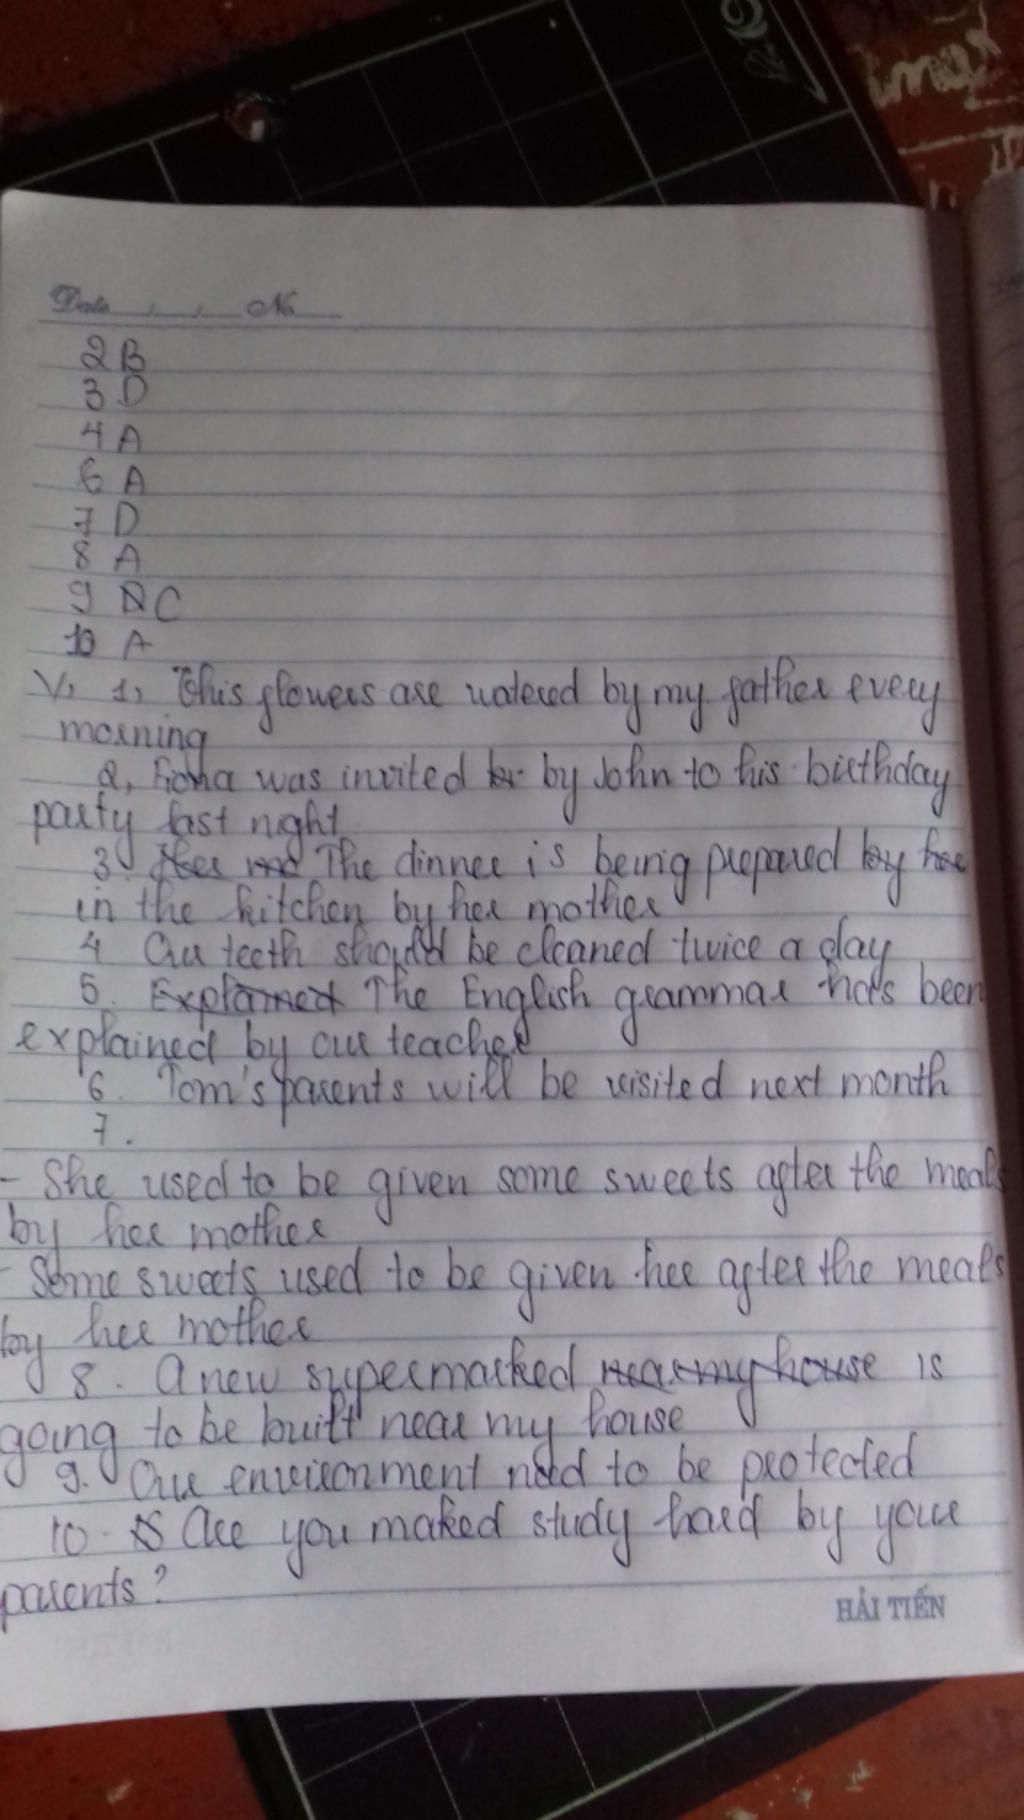 Date No
2 B
3 D
4 A
6 A
7 D
8 A
9 C
10 A
V, 1, This flowers are watered by my father every
morning
2, Fiona was invited by John to his birthday
party last night
3. The dinner is being prepared
in the kitchen by her mother
4 Our teeth should be cleaned twice a day
5. Explained The English grammar has been
explained by our teacher
6. Tom's parents will be visited next month
7.
- She used to be given some sweets after the meals
by her mother
- Some sweets used to be given her after the meals
by her mother
8. A new supermarked near my house is
going to be built near my house
9. Our environment need to be protected
10. Are you maked study hard by your
parents?
HẢI TIẾN